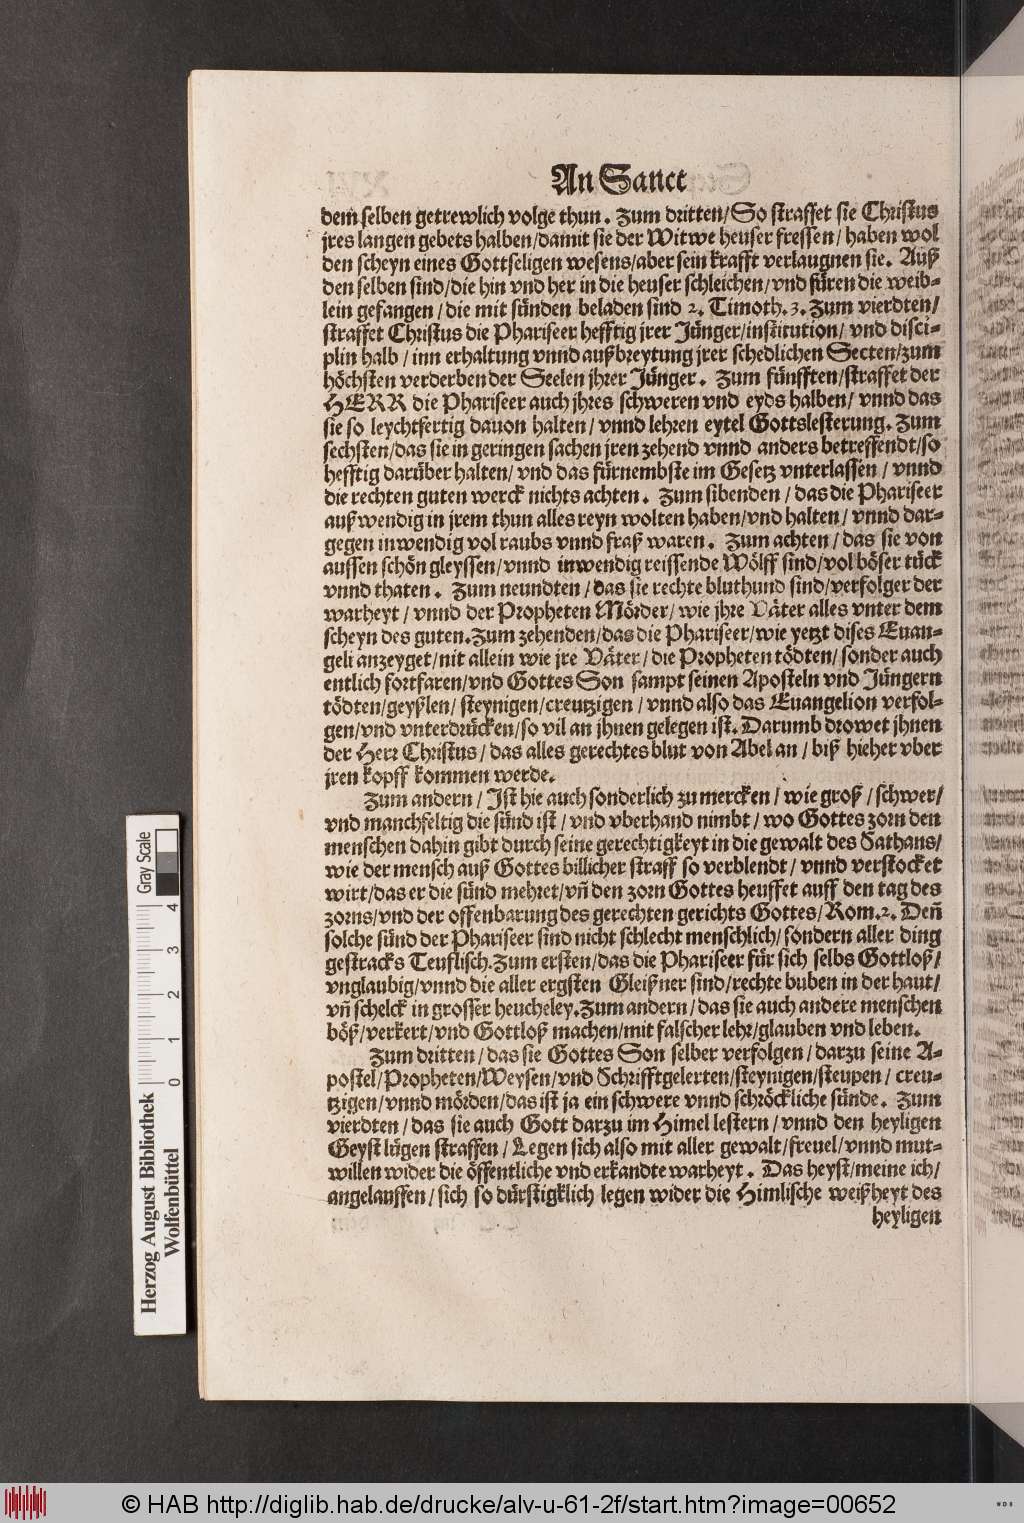 An Sanct
dem selben getrewlich volge thun. Zum dritten/So straffet sie Christus
jres langen gebets halben/damit sie der Witwe heuser fressen/ haben wol
den scheyn eines Gottseligen wesens/aber sein krafft verlaugnen sie. Auß
den selben sind/die hin vnd her in die heuser schleichen/vnd füren die weib-
lein gefangen/die mit sünden beladen sind 2. Timoth. 3. Zum vierdten/
straffet Christus die Phariseer hefftig jrer Jünger/institution/ vnd disci-
plin halb/ inn erhaltung vnnd außbreytung jrer schedlichen Secten/zum
höchsten verderben der Seelen jhrer Jünger. Zum fünfften/straffet der
HERR die Phariseer auch jhres schweren vnd eyds halben/ vnnd das
sie so leychtfertig dauon halten/ vnnd lehren eytel Gottslesterung. Zum
sechsten/das sie in geringen sachen jren zehend vnnd anders betreffendt/so
hefftig darüber halten/ vnd das fürnembste im Gesetz vnterlassen/ vnnd
die rechten guten werck nichts achten. Zum sibenden/ das die Phariseer
außwendig in jrem thun alles reyn wolten haben/vnd halten/ vnnd dar-
gegen inwendig vol raubs vnnd fraß waren. Zum achten/ das sie von
aussen schön gleyssen/vnnd inwendig reissende Wölff sind/vol böser tück
vnnd thaten. Zum neundten/das sie rechte bluthund sind/verfolger der
warheyt/ vnnd der Propheten Mörder/wie jhre Väter alles vnter dem
scheyn des guten. Zum zehenden/das die Phariseer/wie yetzt dises Euan-
geli anzeyget/nit allein wie jre Väter/die Propheten tödten/sonder auch
entlich fortfaren/vnd Gottes Son sampt seinen Aposteln vnd Jüngern
tödten/geyßlen/ steynigen/creutzigen/ vnnd also das Euangelion verfol-
gen/vnd vnterdrücken/so vil an jhnen gelegen ist. Darumb drowet jhnen
der Herr Christus/ das alles gerechtes blut von Abel an/ biß hieher vber
jren kopff kommen werde.
Zum andern/ Ist hie auch sonderlich zu mercken/ wie groß/schwer/
vnd manchfeltig die sünd ist/ vnd vberhand nimbt/ wo Gottes zorn den
menschen dahin gibt durch seine gerechtigkeyt in die gewalt des Sathans/
wie der mensch auß Gottes billicher straff so verblendt/ vnnd verstocket
wirt/das er die sünd mehret/vñ den zorn Gottes heuffet auff den tag des
zorns/vnd der offenbarung des gerechten gerichts Gottes/Rom. 2. Deñ
solche sünd der Phariseer sind nicht schlecht menschlich/sondern aller ding
gestracks Teuflisch. Zum ersten/das die Phariseer für sich selbs Gottloß/
vnglaubig/vnnd die aller ergsten Gleißner sind/rechte buben in der haut/
vñ schelck in grosser heucheley. Zum andern/das sie auch andere menschen
böß/verkert/vnd Gottloß machen/mit falscher lehr/glauben vnd leben.
Zum dritten/das sie Gottes Son selber verfolgen/darzu seine A-
postel/Propheten/Weysen/vnd Schrifftgelerten/steynigen/steupen/ creu-
tzigen/vnnd mörden/das ist ja ein schwere vnnd schröckliche sünde. Zum
vierdten/ das sie auch Gott darzu im Himel lestern/ vnnd den heyligen
Geyst lügen straffen/ Legen sich also mit aller gewalt/freuel/vnnd mut-
willen wider die öffentliche vnd erkandte warheyt. Das heyst/meine ich/
angelauffen/sich so dürstigklich legen wider die Himlische weißheyt des
heyligen
Gray Scale
0 1 2 3 4
Herzog August Bibliothek
Wolfenbüttel
© HAB http://diglib.hab.de/drucke/alv-u-61-2f/start.htm?image=00652